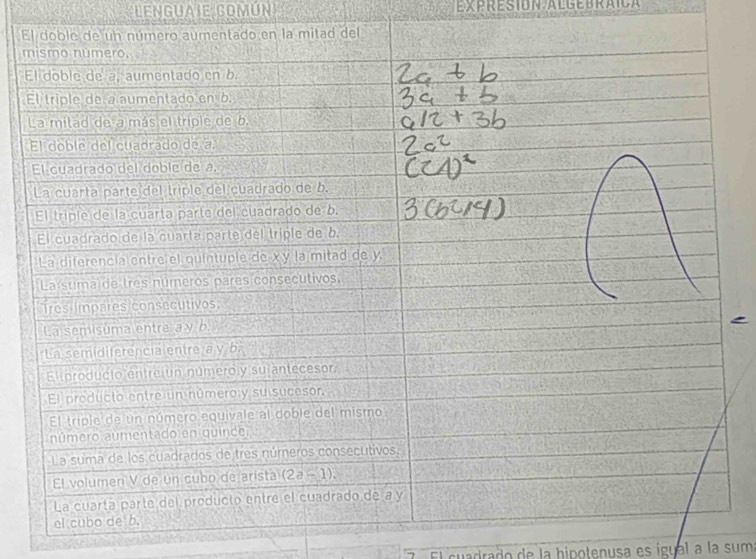 LENGUAJE COMÚN EXPRESIÓN ALGEBRAICA
El doble de un número aumentado en la mitad del
mismo número.
El doble de a, aumentado en b. 2a + b
El triple de a aumentado en b. 3a + b
La mitad de a más el triple de b. a/2 + 3b
El doble del cuadrado de a. 2a²
El cuadrado del doble de a. (2A)²
La cuarta parte del triple del cuadrado de b.
El triple de la cuarta parte del cuadrado de b. 3(b2/4)
El cuadrado de la cuarta parte del triple de b.
La diferencia entre el quíntuple de x y la mitad de y.
La suma de tres números pares consecutivos.
Tres impares consecutivos.
La semisuma entre a y b.
La semidiferencia entre a y b.
El producto entre un número y su antecesor.
El producto entre un número y su sucesor.
El triple de un número equivale al doble del mismo
número aumentado en quince.
La suma de los cuadrados de tres números consecutivos.
El volumen V de un cubo de arista (2a - 1).
La cuarta parte del producto entre el cuadrado de a y
el cubo de b.
7. El cuadrado de la hipotenusa es igual a la sum